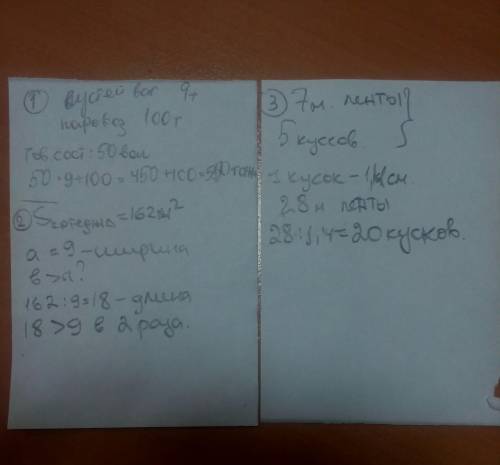 ① Пустой ваг 9т
паровоз 100т
Тов сост: 50 ваг
50·9+100=450+100=550 тонн
② S =162м²
a = 9 - ширина
в > a?
162:9=18 - длина
18>9 в 2 раза.
③ 7 м. ленты
5 кусков.
1 кусок - см.
28 м ленты
28:1,4=20 кусков.